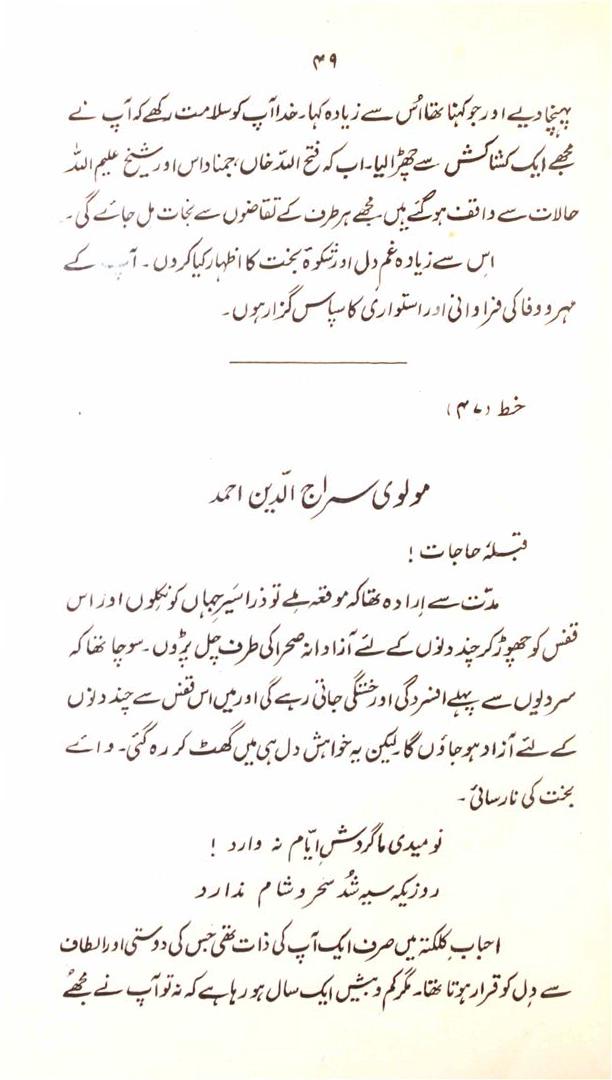 ۴۹
پہنچا دیے اور جو کہنا تھا اُس سے زیادہ کہا۔ خدا آپ کو سلامت رکھے کہ آپ نے
مجھے ایک کشاکش سے چھڑا لیا۔ اب کہ فتح اللہ خاں، جمنا داس اور شیخ علیم اللہ
حالات سے واقف ہو گئے ہیں۔ مجھے ہر طرف کے تقاضوں سے نجات مل جائے گی۔
اس سے زیادہ غمِ دل اور شکوۂ بخت کا اظہار کیا کروں۔ آپ کے
مہر و وفا کی فراوانی اور استواری کا سپاس گزار ہوں۔
خط (۴۷)
مولوی سراج الدّین احمد
قبلۂ حاجات !
مدّت سے اِرادہ تھا کہ موقعہ ملے تو ذرا سَیرِ جہاں کو نکلوں اور اس
قفس کو چھوڑ کر چند دنوں کے لئے آزادانہ صحرا کی طرف چل پڑوں۔ سوچا تھا کہ
سردیوں سے پہلے افسردگی اور خستگی جاتی رہے گی اور میں اس قفس سے چند دنوں
کے لئے آزاد ہو جاؤں گا۔ لیکن یہ خواہش دل ہی میں گھٹ کر رہ گئی۔ وائے
بخت کی نارسائی۔
نومیدی ما گردشِ ایّام نہ دارد !
روزیکہ سیہ شُد سحر و شام ندارد
احبابِ کلکتہ میں صرف ایک آپ کی ذات تھی جس کی دوستی اور الطاف
سے دِل کو قرار ہوتا تھا۔ مگر کم و بیش ایک سال ہو رہا ہے کہ نہ تو آپ نے مجھے